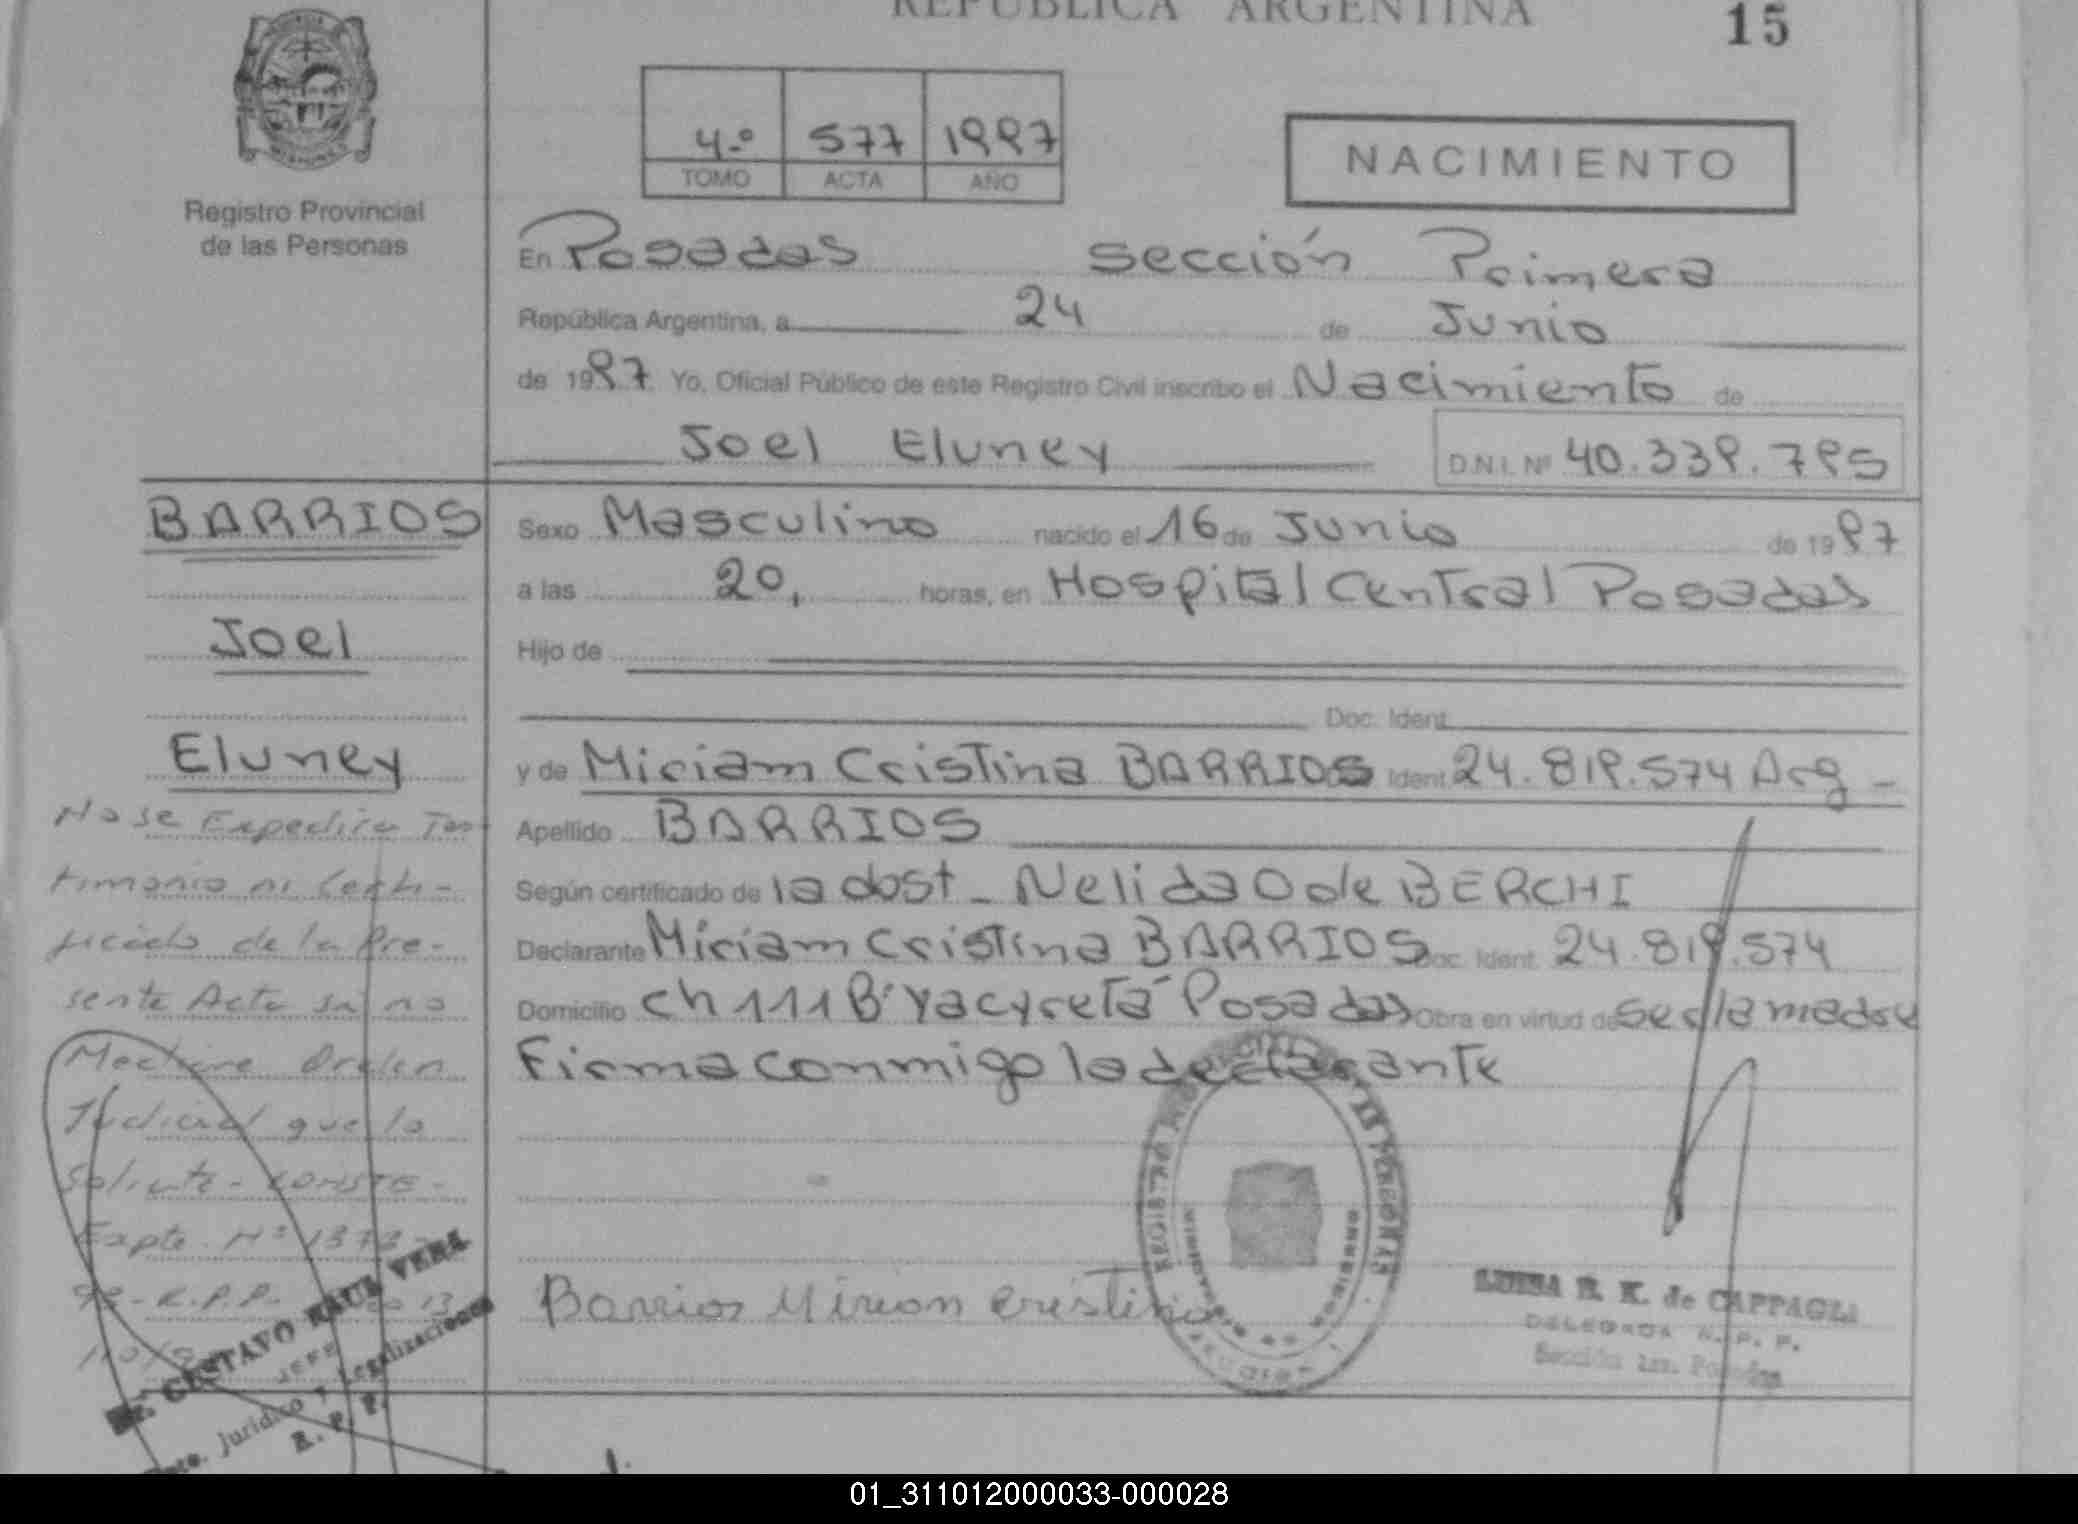 REPUBLICA ARGENTINA
15
4º 577 1997
TOMO ACTA AÑO
NACIMIENTO
MISIONES
Registro Provincial
de las Personas
En Posadas sección Primera
República Argentina, a 24 de Junio
de 1997 Yo, Oficial Público de este Registro Civil inscribo el Nacimiento de
Joel Eluney D.N.I. Nº 40.339.795
BARRIOS
Joel
Eluney
Sexo Masculino nacido el 16 de Junio de 1997
a las 20, horas, en Hospital Central Posadas
Hijo de
Doc. Ident.
y de Miriam Cristina BARRIOS Ident. 24.819.574 Arg -
Apellido BARRIOS
Según certificado de la obst - Nelida O de BERCHI
Declarante Miriam Cristina BARRIOS Doc. Ident. 24.819.574
Domicilio Ch 111 Bº Yacyretá Posadas Obra en virtud de ser la madre
Firma conmigo la declarante
No se Expedira Tes
timonio ni Certi-
ficado de la Pre-
sente Acta si no
Mediare Orden
Judicial que lo
Solicite - CONSTE -
Expte. Nº 1373
R.P.P.
GUSTAVO RAUL VERA
JEFE
Dpto. Jurídico y Legalizaciones
R. P. P.
Barrios Miriam Cristina
LUISA R. K. de CAPPAGLI
DELEGADA R. P. P.
Sección 1ra. Posadas
01_311012000033-000028